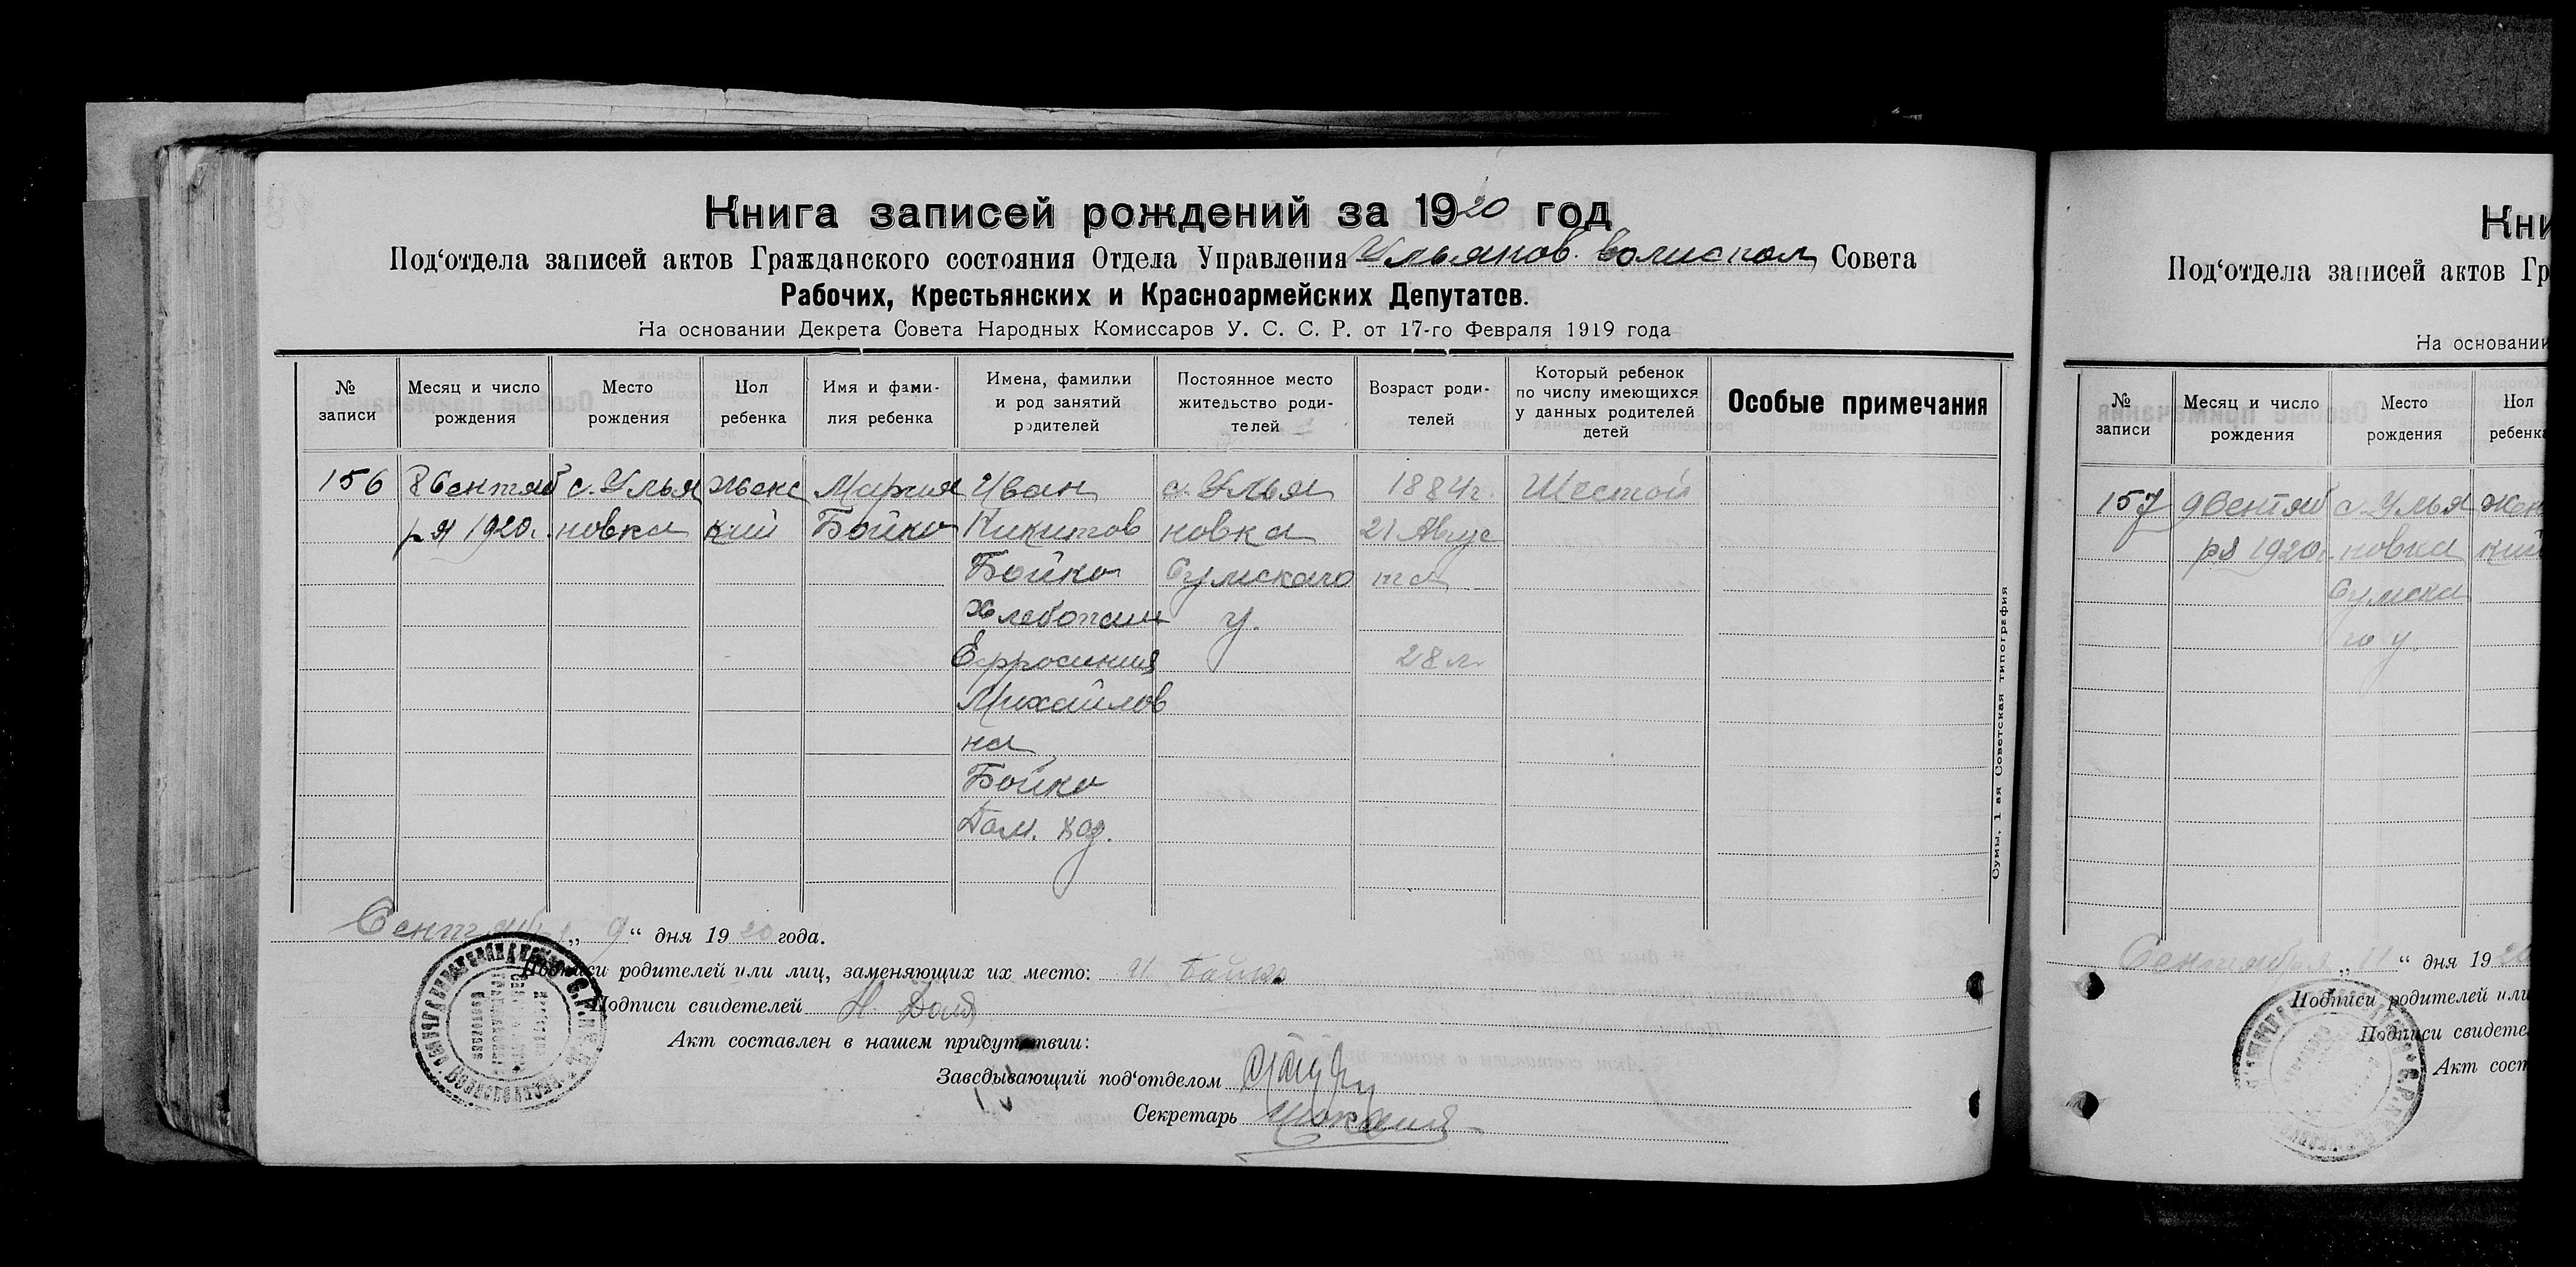 Книга записей рождений за 1920 год
Под‘отдела записей актов Гражданского состояния Отдела Управления Ульянов. волиспол Совета
Рабочих, Крестьянских и Красноармейских Депутатов.
На основании Декрета Совета Народных Комиссаров У. С. С. Р. от 17-го Февраля 1919 года
№ записи
Месяц и число рождения
Место рождения
Пол ребенка
Имя и фами-
лия ребенка
Имена, фамилки
и род занятий
родителей
Постоянное место
жительство роди-
телей
Возраст роди-
телей
Который ребенок
по числу имеющихся
у данных родителей
детей
Особые примечания
156
8 Сентяб
ря 1920г.
с. Улья
новка
женс
кий
Мария
Бойко
Иван
Никитов
Бойко
Хлебопаш
Ефросиния
Михайлов
на
Бойко
Дом. хоз.
с. Улья
новка
Сумского
у.
1884г.
21 Авгус
та
28 л.
Шестой
Сумы, 1 ая Советская типография
Сентября „ 9 “ дня 1920 года.
Подписи родителей или лиц, заменяющих их место: И. Бойко
Подписи свидетелей Н. Доля
Акт составлен в нашем присутствии:
Заведывающий под‘отделом
Секретарь
Кни
Под‘отдела записей актов Гр
На основании
№ записи
Месяц и число рождения
Место рождения
Пол ребенка
157
9 Сентяб
ря 1920г.
с. Улья
новка
Сумска
го у.
жен
кий
Сентября „ 11 “ дня 1920
Подписи родителей или
Подписи свидете
Акт сост